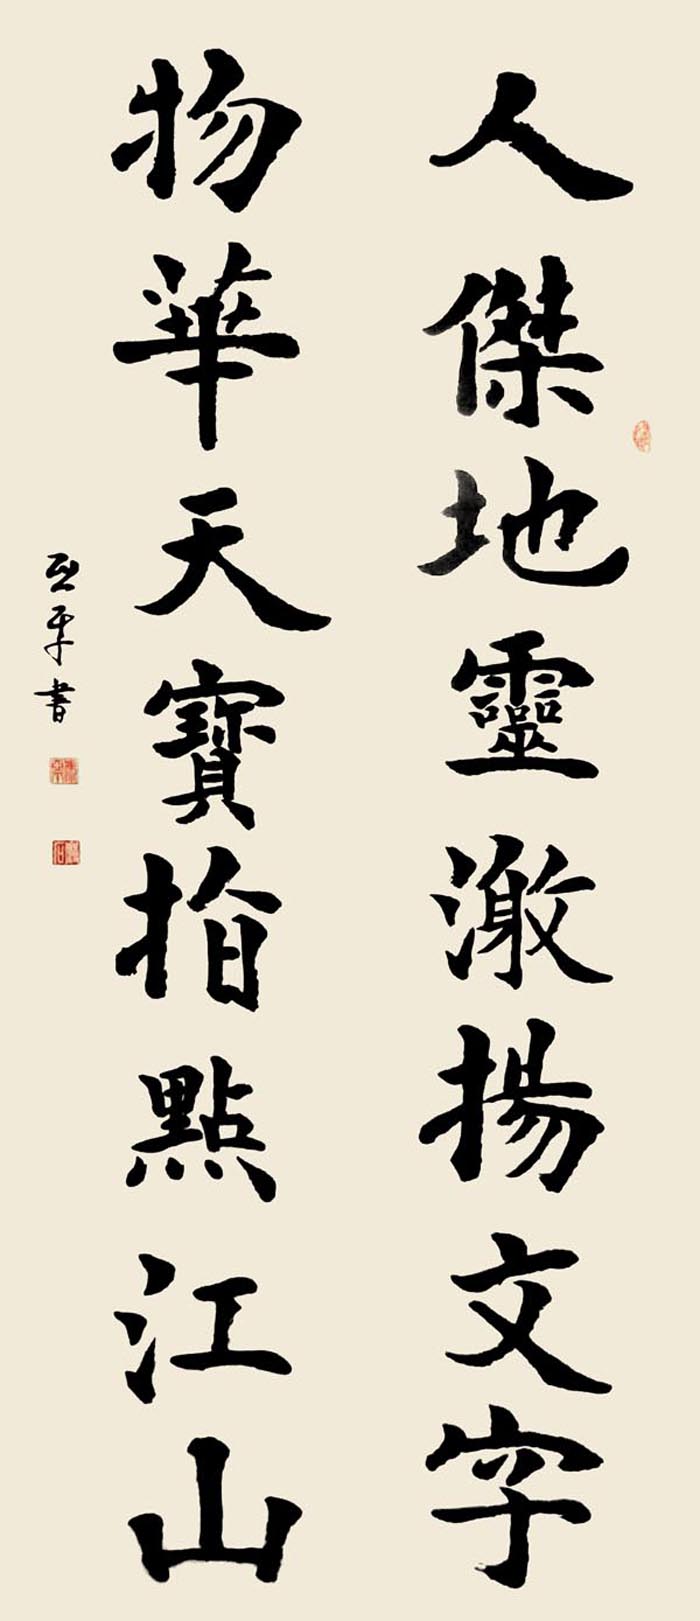 人傑地靈激揚文字
物華天寶指點江山
亞平書